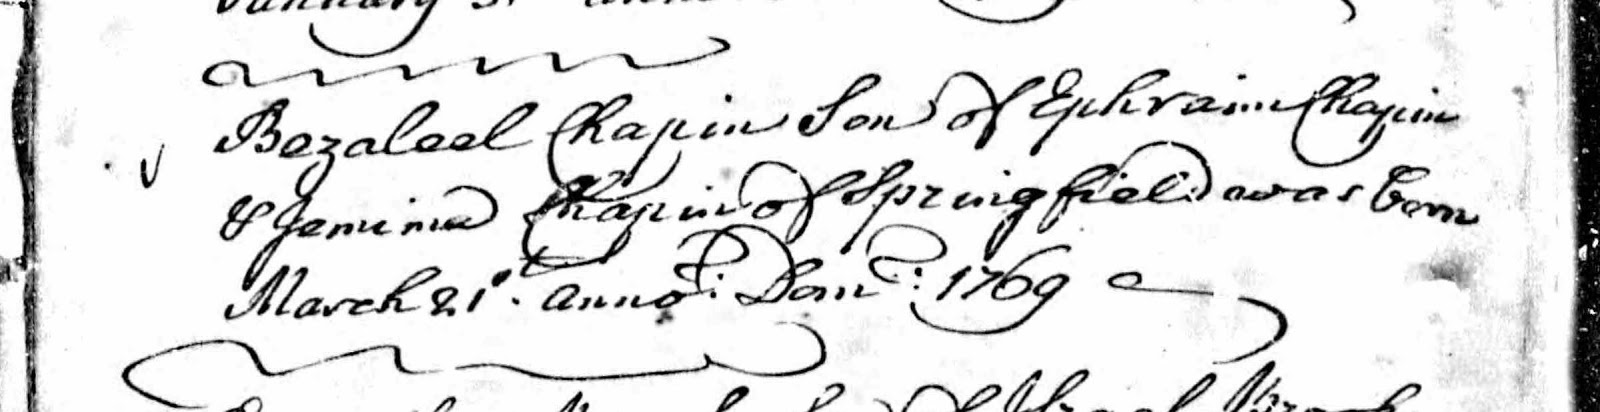 January 31
Bezaleel Chapin Son of Ephraim Chapin
& Jemima Chapin of Springfield was born
March 21st. anno: Dom: 1769